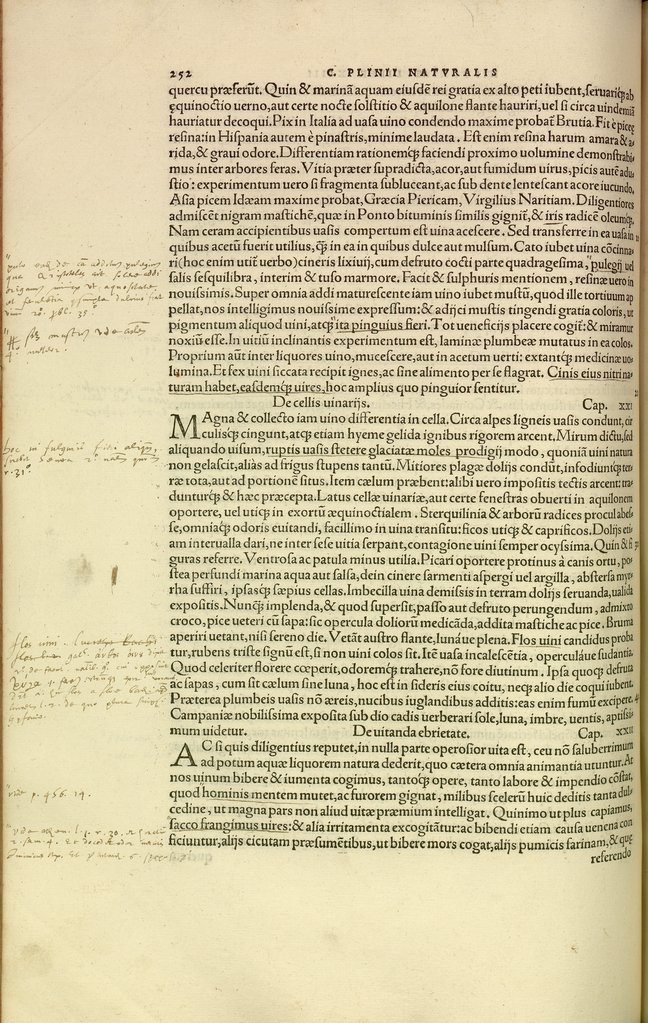 252 C. PLINII NATVRALIS
quercu præferūt. Quin & marinā aquam eiusdē rei gratia ex alto peti iubent, seruariq; ab
ęquinoctio uerno, aut certe nocte solstitio & aquilone flante hauriri, uel si circa uindemiā
hauriatur decoqui. Pix in Italia ad uasa uino condendo maxime probat̄ Brutia. Fit è piceę
resina: in Hispania autem è pinastris, minime laudata. Est enim resina harum amara & a-
rida, & graui odore. Differentiam rationemq́; faciendi proximo uolumine demonstrabi-
mus inter arbores feras. Vitia præter supradicta, acor, aut fumidum uirus, picis autē adu-
stio: experimentum uero si fragmenta subluceant, ac sub dente lentescant acore iucundo.
Asia picem Idæam maxime probat, Græcia Piericam, Virgilius Naritiam. Diligentiores
admiscēt nigram mastichē, quæ in Ponto bituminis similis gignit̄, & iris radicē oleumq́;.
Nam ceram accipientibus uasis compertum est uina acescere. Sed transferre in ea uasa in
quibus acetū fuerit utilius, q̄; in ea in quibus dulce aut mulsum. Cato iubet uina cōcinna-
ri (hoc enim utit̄ uerbo) cineris lixiuij, cum defruto cocti parte quadragesima, pulegij uel
salis sesquilibra, interim & tuso marmore. Facit & sulphuris mentionem, resinæ uero in
nouissimis. Super omnia addi maturescente iam uino iubet mustū, quod ille tortiuum ap
pellat, nos intelligimus nouissime expressum: & adijci mustis tingendi gratia coloris, ut
pigmentum aliquod uini, atq; ita pinguius fieri. Tot ueneficijs placere cogit̄: & miramur
noxiū esse. In uitiū inclinantis experimentum est, laminæ plumbeæ mutatus in ea colos.
Proprium aūt inter liquores uino, mucescere, aut in acetum uerti: extantq́; medicinæ uo-
lumina. Et fex uini siccata recipit ignes, ac sine alimento per se flagrat. Cinis eius nitri na-
turam habet, easdemq́; uires, hoc amplius quo pinguior sentitur.
De cellis uinarijs. Cap. xxi
MAgna & collecto iam uino differentia in cella. Circa alpes ligneis uasis condunt, cir
culisq́; cingunt, atq; etiam hyeme gelida ignibus rigorem arcent. Mirum dictu, sed
aliquando uisum, ruptis uasis stetere glaciatæ moles prodigij modo, quoniā uini natura
non gelascit, aliàs ad frigus stupens tantū. Mitiores plagæ dolijs condūt, infodiuntq́; ter-
ræ tota, aut ad portionē situs. Item cælum præbent: alibi uero impositis tectis arcent: tra-
duntурq́; & hæc præcepta. Latus cellæ uinariæ, aut certe fenestras obuerti in aquilonem
oportere, uel utiq; in exortū æquinoctialem. Sterquilinia & arborū radices procul abes-
se, omniaq́; odoris euitandi, facillimo in uina transitu: ficos utiq; & caprificos. Dolijs eti-
am interualla dari, ne inter sese uitia serpant, contagione uini semper ocyssima. Quin & fi
guras referre. Ventrosa ac patula minus utilia. Picari oportere protinus à canis ortu, po-
stea perfundi marina aqua aut salsa, dein cinere sarmenti aspergi uel argilla, abstersa myr-
rha suffiri, ipsasq́; sæpius cellas. Imbecilla uina demissis in terram dolijs seruanda, ualida
expositis. Nunq̄; implenda, & quod supersit, passo aut defruto perungendum, admixto
croco, pice ueteri cū sapa: sic opercula doliorū medicāda, addita mastiche ac pice. Bruma
aperiri uetant, nisi sereno die. Vetāt austro flante, lunáue plena. Flos uini candidus proba
tur, rubens triste signū est, si non uini colos sit. Itē uasa incalescētia, operculáue sudantia.
Quod celeriter florere cœperit, odoremq́; trahere, nō fore diutinum. Ipsa quoq; defruta
ac sapas, cum sit cælum sine luna, hoc est in sideris eius coitu, neq; alio die coqui iubent.
Præterea plumbeis uasis nō æreis, nucibus iuglandibus additis: eas enim fumū excipere.
Campaniæ nobilissima exposita sub dio cadis uerberari sole, luna, imbre, uentis, aptissi-
mum uidetur. De uitanda ebrietate. Cap. xxii
AC si quis diligentius reputet, in nulla parte operosior uita est, ceu nō saluberrimum
ad potum aquæ liquorem natura dederit, quo cætera omnia animantia utuntur. At
nos uinum bibere & iumenta cogimus, tantoq́; opere, tanto labore & impendio cōstat,
quod hominis mentem mutet, ac furorem gignat, milibus scelerū huic deditis tanta dul-
cedine, ut magna pars non aliud uitæ præmium intelligat. Quinimo ut plus capiamus,
sacco frangimus uires: & alia irritamenta excogitātur: ac bibendi etiam causa uenena con
ficiuntur, alijs cicutam præsumētibus, ut bibere mors cogat, alijs pumicis farinam, & quę
referendo